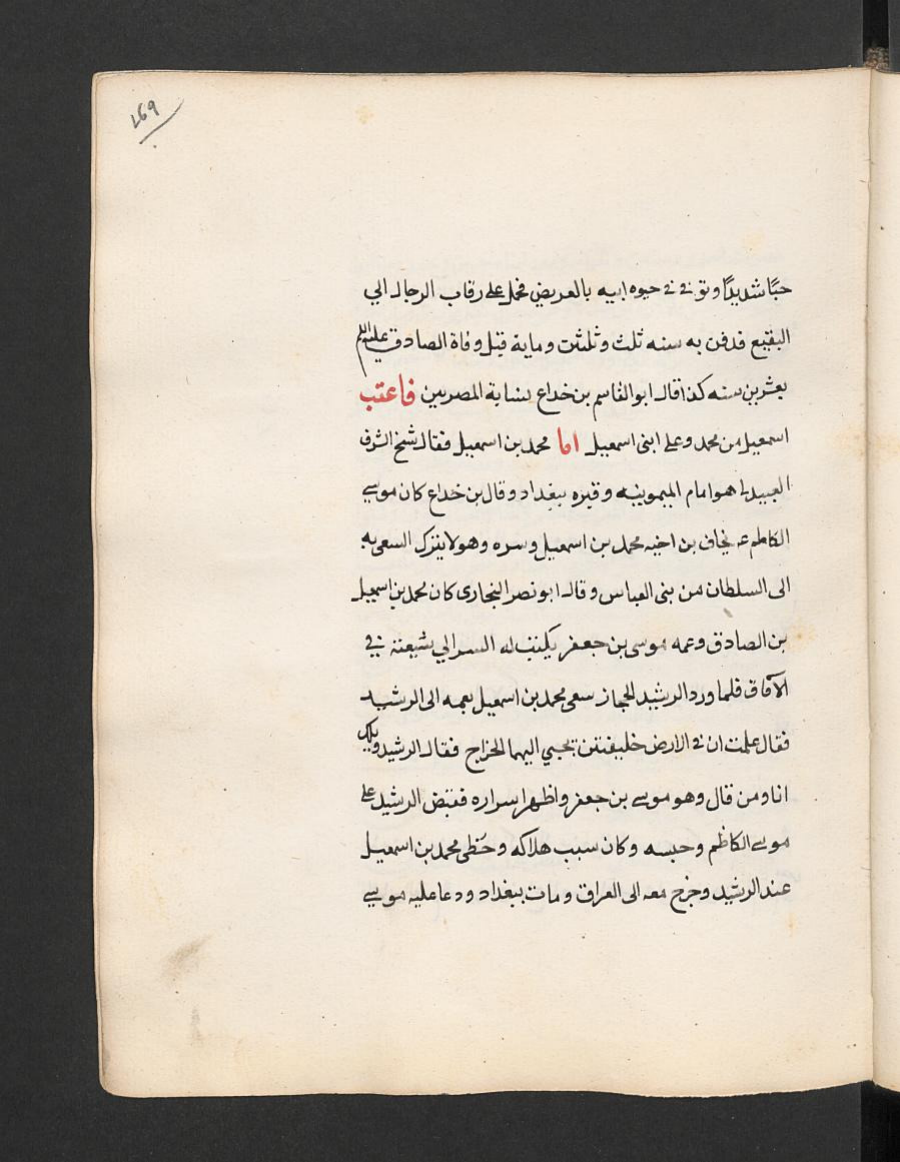 169
حبًا شديدًا وتوفى فى حيوه ابيه بالعريض فحمل على رقاب الرجال الي
البقيع فدفن به سنه ثلث وثلثين وماية قبل وفاة الصادق عليه السلم
بعشرين سنه كذا قال ابو القاسم بن خداع نسابة المصريين فاعقب
اسمعيل من محمد وعلى ابنى اسمعيل اما محمد بن اسمعيل فقال شيخ الشرف
العبيدلى هو امام الميمونيه وقبره ببغداد وقال بن خداع كان موسى
الكاظم عـ يخاف بن اخيه محمد بن اسمعيل وسره وهو لا يترك السعى به
الى السلطان من بنى العباس وقال ابو نصر البخارى كان محمد بن اسمعيل
بن الصادق وعمه موسى بن جعفر يكتب له السر الي شيعته فى
الآفاق فلما ورد الرشيد الحجاز سعى محمد بن اسمعيل بعمه الى الرشيد
فقال علمت ان فى الارض خليفتين يجبي اليهما الخراج فقال الرشيد ويلك
انا ومن قال وهو موسى بن جعفر واظهر اسراره فقبض الرشيد على
موسى الكاظم وحبسه وكان سبب هلاكه وحظى محمد بن اسمعيل
عند الرشيد وخرج معه الى العراق ومات ببغداد ودعا عليه موسى